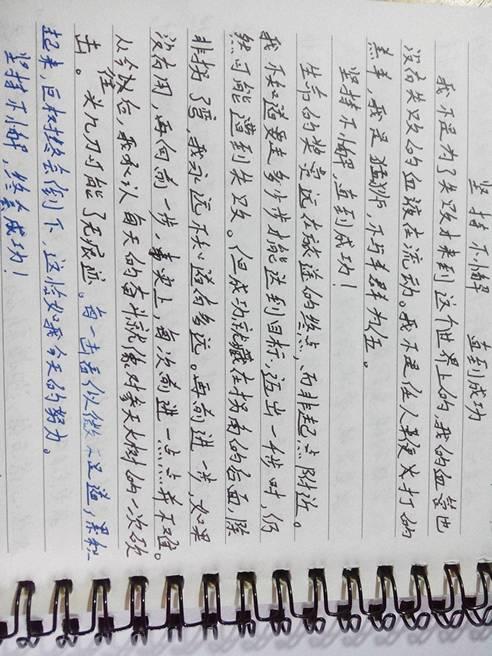 坚持不懈 直到成功
我不是为了失败才来到这个世界上的我的血管也
没有失败的血液在流动。我不是任人鞭打的
羔羊，我是猛狮，不与羊群为伍。
坚持不懈 直到成功！
生命的奖赏远在旅途的终点，而非起点附近。
我不知道要走多少步才能达到目标，迈出一千步时，仍
然可能遭到失败。但成功就藏在拐角的后面，除
非拐了弯，我永远不知道有多远。再前进一步，如果
没有用，再向前一步，事实上，每次前进一点点并不难。
从今以后，我承认每天的奋斗就像对参天大树的一次砍
击。头几刀可能了无痕迹。每一击看似微不足道，累积
起来，巨树终会倒下，这恰如我今天的努力。
坚持不懈，终会成功！